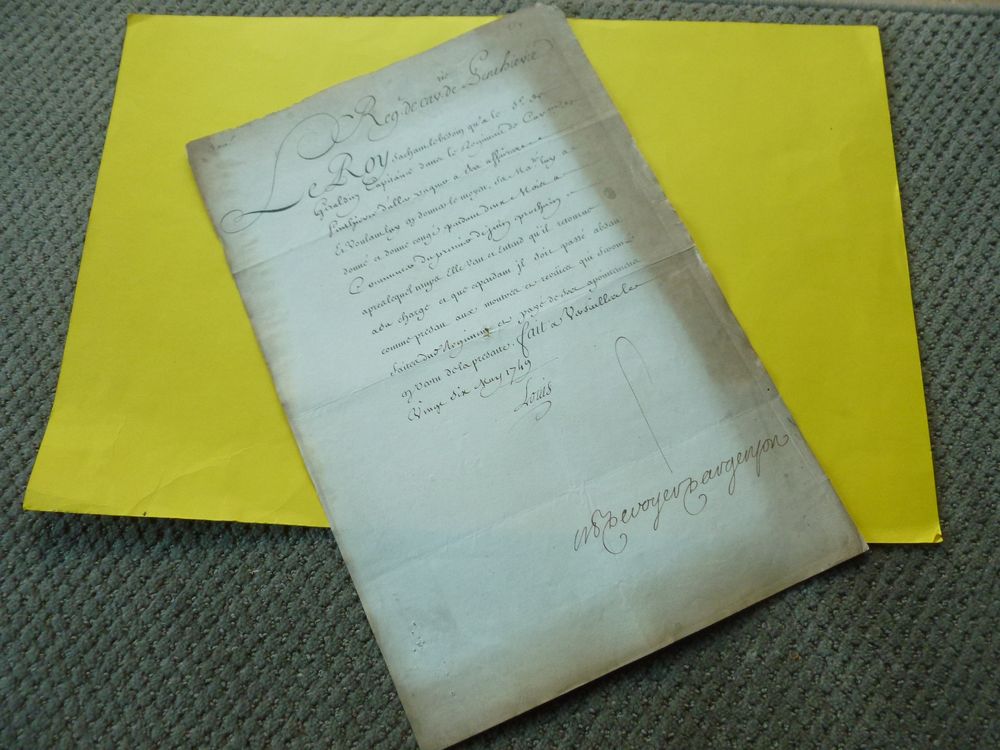 Reg.t de cav.rie de Penthievre
Le Roy Sachant le besoin qu'a le S.r de
Giraldin Capitaine dans le Regiment de Cavalerie
Penthievre d'aller vaquer a ses affaires
Et Voulant luy en donner le moyen, Sa Ma.té luy a
donné et donne congé pendant deux Mois a
Commencer du premier de juin prochain
apres lequel temps Elle veut et entend qu'il retourne
a sa charge et que cependant il soit passé absent
comme présent aux montres et reveües qui seront
faites dud. Regiment et payé de ses apointemens
en vertu de la presente. fait a Versailles le
Vingt Six May 1749
Louis
M de Voyer d'argenson